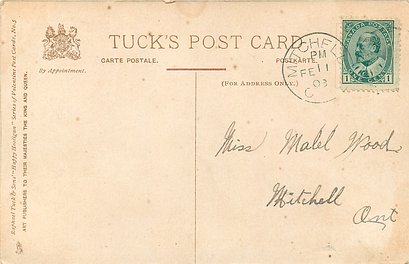 TUCK'S POST CARD
CARTE POSTALE.
POSTKARTE.
(FOR ADDRESS ONLY.)
By Appointment.
Raphael Tuck & Sons' "Happy Hooligan" Series of Valentine Post Cards, No. 5
ART PUBLISHERS TO THEIR MAJESTIES THE KING AND QUEEN.
MITCHE
PM
FE 11
CANADA POSTAGE
1 1
Miss Mabel Wood
Mitchell
Ont